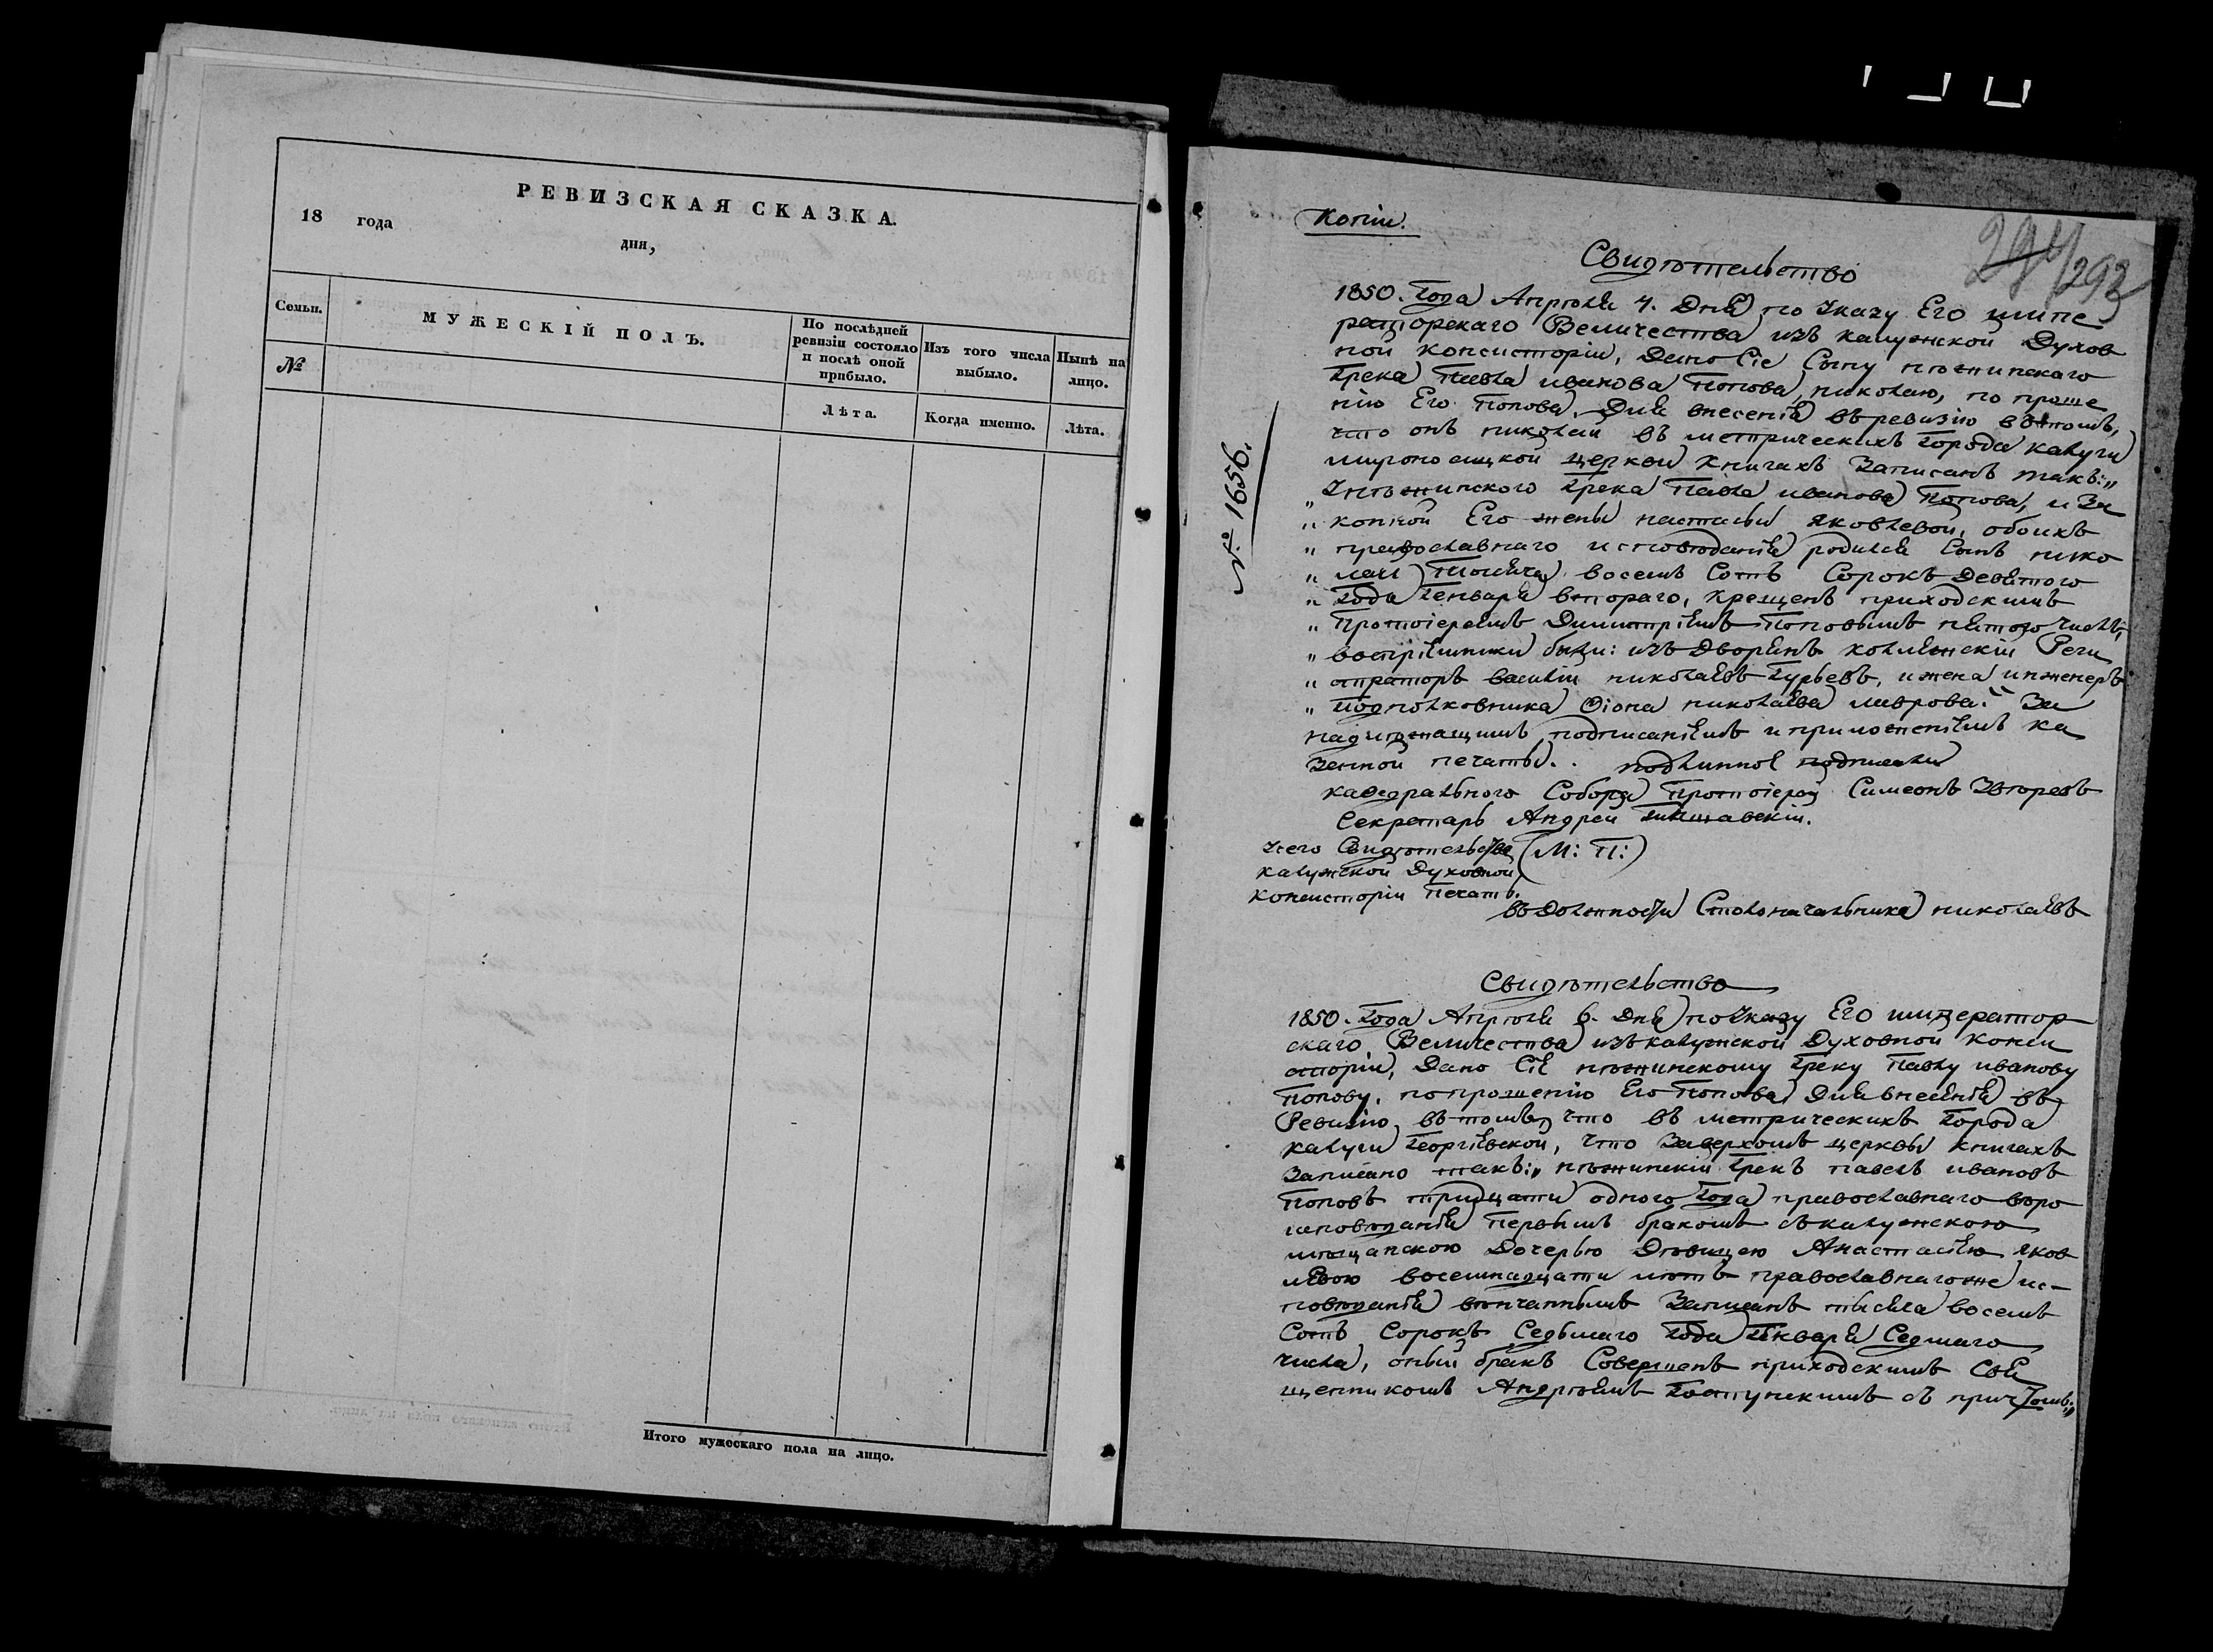 РЕВИЗСКАЯ СКАЗКА.
18 года
дня,
Семьи.
МУЖЕСКІЙ ПОЛЪ.
По послѣдней ревизіи состояло и послѣ оной прибыло.
Изъ того числа выбыло.
Нынѣ на лицо.
№
Лѣта.
Когда именно.
Лѣта.
Итого мужескаго пола на лицо.
Копіи.
294/293
Свидѣтельство
1850. Года Апрѣля 4. Дня по Указу Его Импе
раторскаго Величества изъ калужской Духов
ной консисторіи, дано Сіе Сыну нѣжинскаго
Грека Павла иванова Попова, николаю, по проше
нію Его Попова, Для внесенія въ ревизію въ томъ,
что онъ николай въ метрическихъ города Калуги
мироносицкой церкви книгахъ Записанъ такъ:„
„ У нѣжинского Грека Павла иванова Попова, и За
„ конной Его жены настасьи яковлевой, обоихъ
„ православнаго исповѣданія родился Сынъ нико
„ лай Тысяча восемь Сотъ Сорокъ Девятого
„ Года Генваря втораго, крещенъ приходскимъ
„ Протоіереемъ Димитріемъ Поповымъ пятого числа,
„ воспріемники были: изъ Дворянъ коллежскій Реги
„ страторъ василій николаевъ Гурьевъ, и жена инженеръ
„ Подполковника Фіона николаева лаврова.„ За
надлежащимъ подписаніемъ и приложеніемъ ка
Зенной печати. . подлинное подписали
кафедральнаго Собора Протоіерей Симеонъ
Секретарь Андрей
№ 1656.
У сего Свидѣтельства (М: П:)
калужской Духовной
консисторіи Печать.
въ Должности Столоначальника николаевъ
Свидѣтельство
1850. Года Апрѣля 6. Дня по Указу Его император
скаго Величества изъ калужской Духовной конси
сторіи, Дано Сіе нѣжинскому Греку Павлу иванову
Попову, по прошенію Его Попова, Для внесенія въ
Ревизію въ томъ, что въ метрическихъ Города
калуги Георгіевской, что Заверхомъ церквы книгахъ
Записано такъ:„ нѣжинскій Грекъ павелъ ивановъ
Поповъ тридцати одного Года православнаго вѣро
исповѣданія Первымъ бракомъ съ калужскою
мѣщанскою Дочерью Дѣвицею Анастасіею яков
левою восемнадцати лѣтъ православнаго же ис-
повѣданія вѣнчаннымъ Записанъ тысяча восемь
Сотъ Сорокъ Седьмаго Года Генваря Седмаго
числа, оный бракъ Совершенъ приходскимъ Свя
щенникомъ Андрѣемъ Гостунскимъ съ причтомъ:„